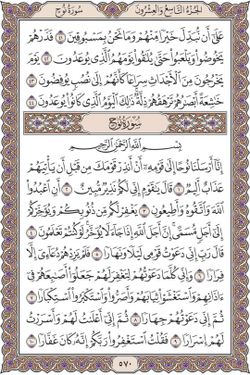 الجزء التاسع والعشرون سورة نوح
على أن نبدل خيرا منهم وما نحن بمسبوقين ٤١ فذرهم
يخوضوا ويلعبوا حتى يلقوا يومهم الذي يوعدون ٤٢ يوم
يخرجون من الأجداث سراعا كأنهم إلى نصب يوفضون ٤٣
خاشعة أبصارهم ترهقهم ذلة ذلك اليوم الذي كانوا يوعدون ٤٤
سورة نوح
بسم الله الرحمن الرحيم
إنا أرسلنا نوحا إلى قومه أن أنذر قومك من قبل أن يأتيهم
عذاب أليم ١ قال يقوم إني لكم نذير مبين ٢ أن اعبدوا
الله واتقوه وأطيعون ٣ يغفر لكم من ذنوبكم ويؤخركم
إلى أجل مسمى إن أجل الله إذا جاء لا يؤخر لو كنتم تعلمون
٤ قال رب إني دعوت قومي ليلا ونهارا ٥ فلم يزدهم دعاءي إلا
فرارا ٦ وإني كلما دعوتهم لتغفر لهم جعلوا أصبعهم في
ءاذانهم واستغشوا ثيابهم وأصروا واستكبروا استكبارا
٧ ثم إني دعوتهم جهارا ٨ ثم إني أعلنت لهم وأسررت
لهم إسرارا ٩ فقلت استغفروا ربكم إنه كان غفارا ١٠
٥٧٠